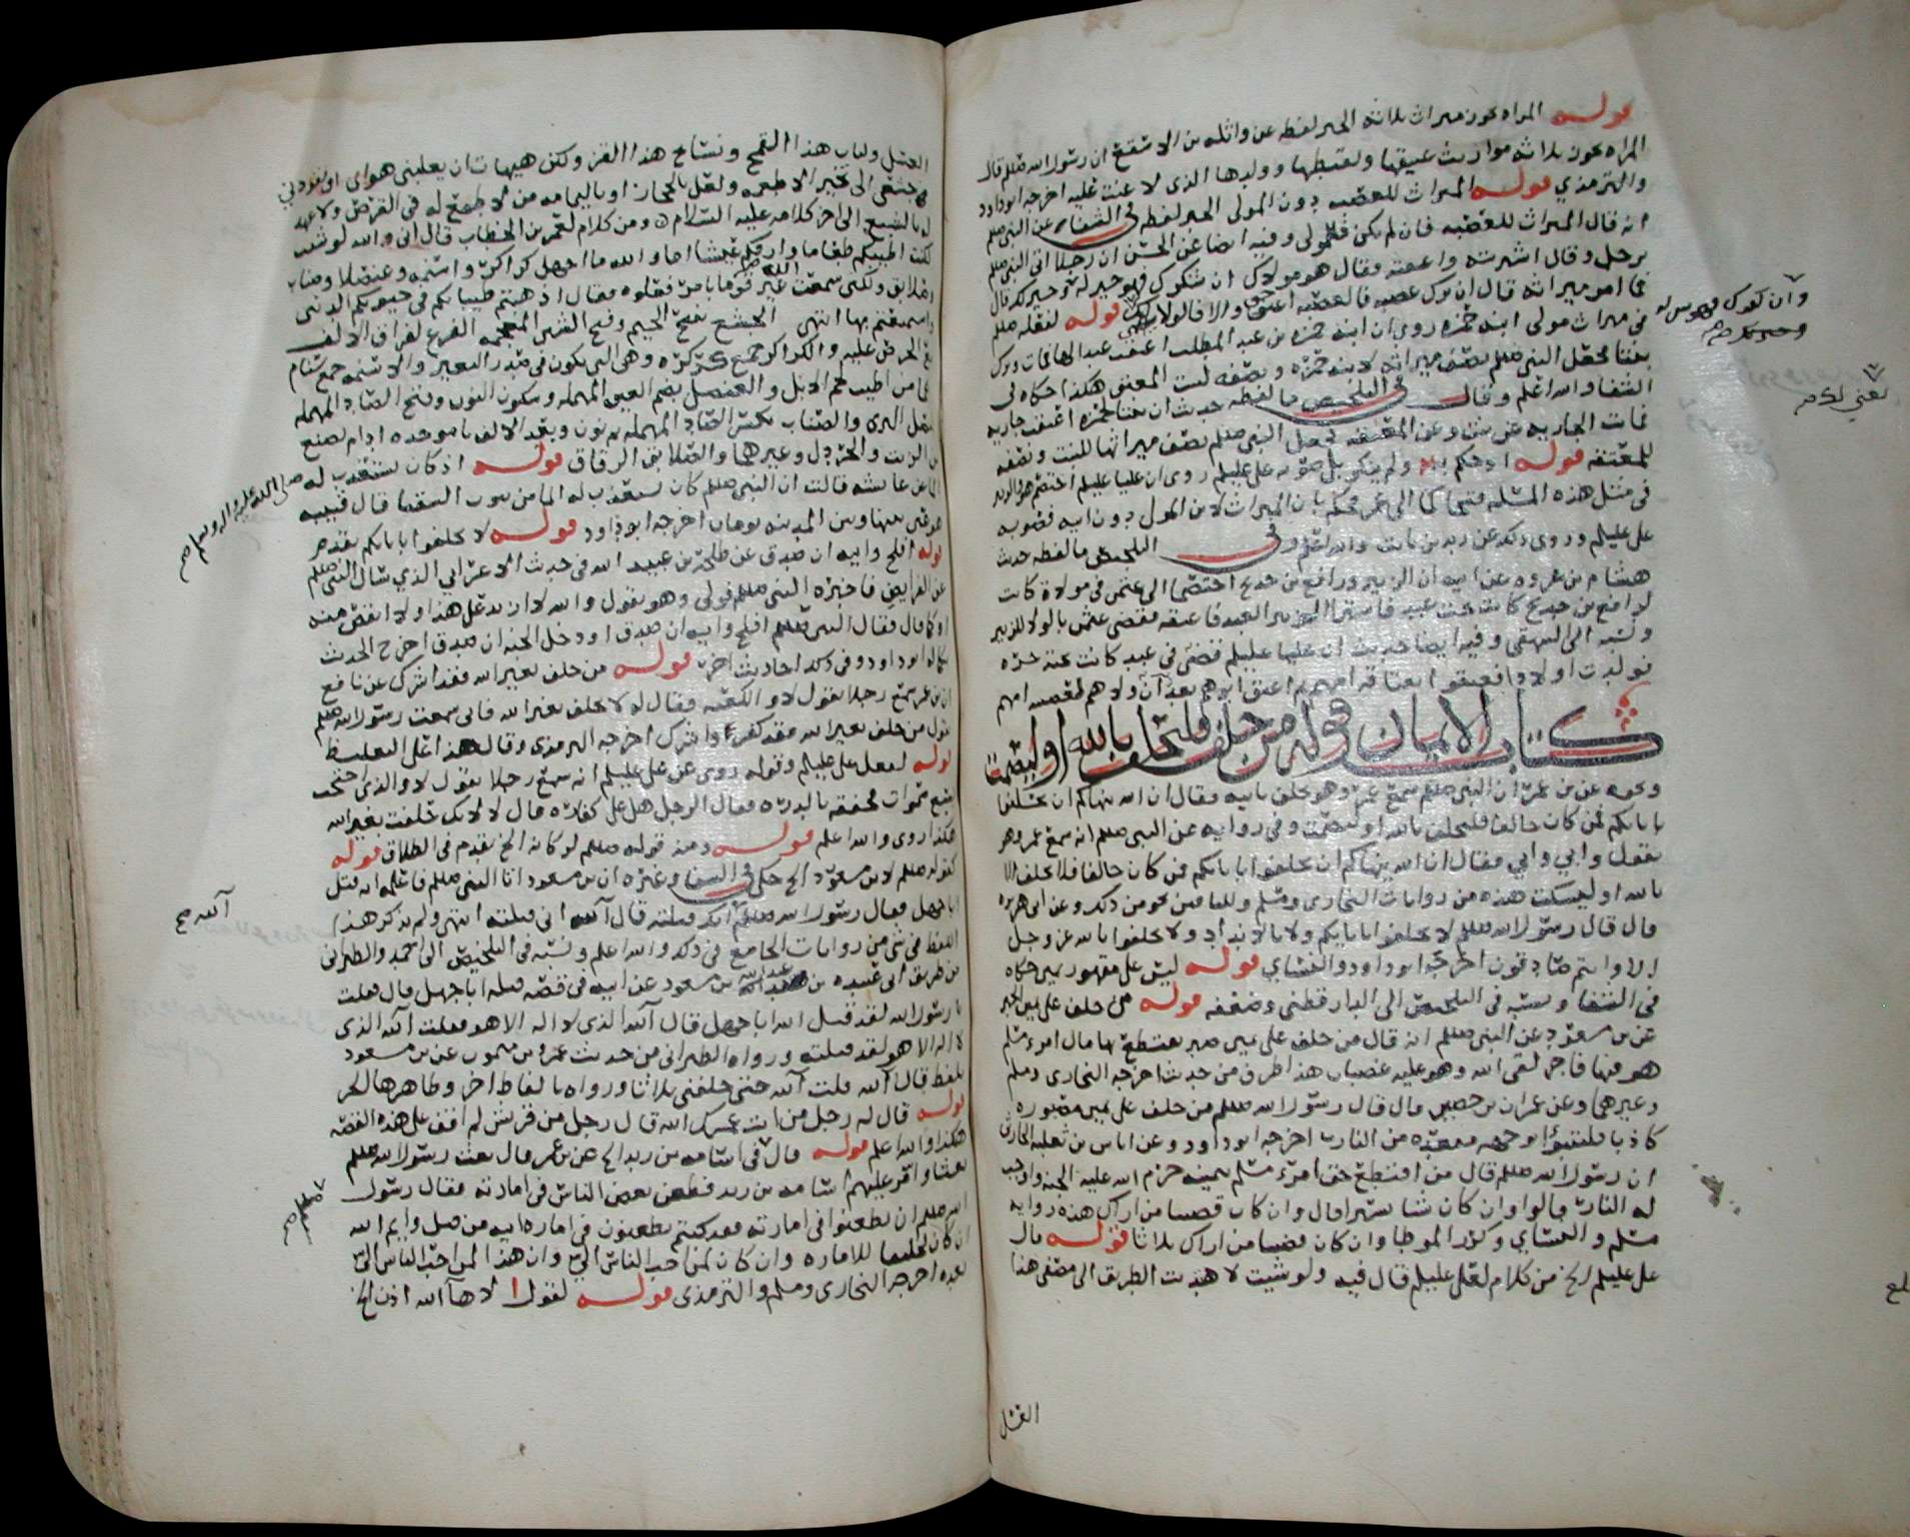 قوله المراه تحوز ميراث ثلاثه الخبر لفظه عن واثله بن الاسقع ان رسول الله صللم قال
المراه تحوز ثلاثه مواريث عتيقها ولقيطها وولدها الذى لاعنت عليه اخرجه ابو داود
والترمذي قوله الميراث للعصبه دون المولى الخبر لفظه في الشفاء عن النبي صللم
انه قال الميراث للعصبه فان لم يكن فللمولى وفيه ايضا عن الحسن ان رجلا اتى النبي صللم
برجل وقال اشتريته واعتقته فقال هو مولاك ان شكرك فهو خير له وخير لك قال
فما امر ميراثه قال ان ترك عصبه فالعصبه احق والا فالولا لك قوله لفعله صللم
في ميراث مولى ابنه حمزه روي ان ابنه حمزه بن عبد المطلب اعتقت عبدا لها فمات وترك
بنتا فجعل النبي صللم نصف ميراثه لابنه حمزه ونصفه لبنت المعتق هكذا حكاه في
الشفا والله اعلم وقال في التلخيص ما لفظه حديث ان بنتا لحمزه اعتقت جاريه
فماتت الجاريه عن بنت وعن المعتقه فجعل النبي صللم نصف ميراثها للبنت ونصفه
للمعتقه قوله ولم ينكر بل صوبه على عليلم روى ان عليا عليلم اختصم هو والزبير
في مثل هذه المسئله فتحاكما الى عمر فحكم بان الميراث لابن المولى دون ابيه فصوبه
على عليلم وروى ذلك عن زيد بن ثابت والله اعلم وفي التلخيص ما لفظه حديث
هشام بن عروه عن ابيه ان الزبير ورافع بن خديج اختصما الى عثمن في مولاة كانت
لرافع بن خديج كانت تحت عبد فاشترى الزبير العبد فاعتقه فقضى عثمن بالولا للزبير
ونسبه الى البيهقي وفيه ايضا حديث ان عليا عليلم قضى في عبد كانت تحته حره
فولدت اولادا فعتقوا بعتاقه امهم ثم اعتق ابوهم بعد ان ولاهم لعصبه امهم
كتاب الايمان قوله من حلف فليحلف بالله او ليصمت
ونحوه عن بن عمر ان النبي صللم سمع عمر وهو يحلف بابيه فقال ان الله ينهاكم ان تحلفوا
بابائكم فمن كان حالفا فليحلف بالله او ليصمت وفي روايه عن النبي صللم انه سمع عمر وهو
يقول وابي وابي فقال ان الله ينهاكم ان تحلفوا بابائكم فمن كان حالفا فلا يحلف الا
بالله او ليسكت هذه من روايات البخارى ومسلم وللباقين نحو من ذلك وعن ابى هريره
قال قال رسول الله صللم لا تحلفوا بابائكم ولا بالانداد ولا تحلفوا بالله عز وجل
الا وانتم صادقون اخرجه ابو داود والنسائي قوله ليس على مقهور يمين حكاه
في الشفا ونسبه في التلخيص الى الدارقطني وضعفه قوله من حلف على يمين الخبر
عن بن مسعود عن النبي صللم انه قال من حلف على يمين صبر يقتطع بها مال امرء مسلم
هو فيها فاجر لقى الله وهو عليه غضبان هذا طرف من حديث اخرجه البخارى ومسلم
وغيرهما وعن عمران بن حصين قال قال رسول الله صللم من حلف على يمين مصبوره
كاذبا فليتبوأ بوجهه مقعده من النار اخرجه ابو داود وعن اياس بن ثعلبه الحارثى
ان رسول الله صللم قال من اقتطع حق امرء مسلم بيمينه حرم الله عليه الجنه واوجب
له النار قالوا وان كان شيئا يسيرا قال وان كان قضيبا من اراك هذه روايه
مسلم والنسائي وكرر الموطا وان كان قضيبا من اراك ثلاثا قوله قال
على عليلم الخ من كلام لعلى عليلم قال فيه ولو شيت لاهتديت الطريق الى مصفى هذا
العسل
وان كفرك فهو شر له
يعني لك صح
العسل ولباب هذا القمح ونسائج هذا القز ولكن هيهات ان يغلبني هواى او يقودني
جشعي الى تخير الاطعمه ولعل بالحجاز او باليمامه من لا طمع له في القرص ولا عهد
له بالشبع الى اخر كلامه عليه السلام ومن كلام لعمر بن الخطاب قال انى والله لو شيت
لكنت اطيبكم طعاما وارقكم عيشا اما والله ما اجهل كراكر واسنمه وعن صلا وصناب
وصلائق ولكنى سمعت الله عير قوما بامر فعلوه فقال اذهبتم طيباتكم في حيوتكم الدنيى
واستمتعتم بها انتهى الجشع بفتح الجيم وفتح الشين المعجمه الفزع لفراق الالف
مع الحرص عليه والكراكر جمع كركره وهى التى تكون في صدر البعير والاسنمه جمع سنام
قوله اذ كان يستعذب له
الماء عن عايشه قالت ان النبي صللم كان يستعذب له الما من بيوت السقيا قال قتيبه
هو عين بينها وبين المدينه يومان اخرجه ابو داود قوله لا تحلفوا بابائكم تقدم
قوله افلح وابيه ان صدق عن طلحه بن عبيد الله في حديث الاعرابي الذي سال النبي صللم
عن الفرايض فاخبره النبي صللم فولى وهو يقول والله لا ازيد على هذا ولا انقص منه
او كما قال فقال النبي صللم افلح وابيه ان صدق او دخل الجنه ان صدق اخرج الحديث
بكماله ابو داود وفي ذلك احاديث اخر قوله من حلف بغير الله فقد اشرك عن نافع
ان بن عمر سمع رجلا يقول لا والكعبه فقال له لا تحلف بغير الله فانى سمعت رسول الله صللم
يقول من حلف بغير الله فقد كفر او اشرك اخرجه الترمذى وقال هذا على التغليظ
قوله لفعل على عليلم وقوله روى عن على عليلم انه سمع رجلا يقول لا والذى احتجب
بسبع سموات فخفقه بالدره فقال الرجل هل على كفاره قال لا لانك حلفت بغير الله
هكذا روى والله اعلم قوله ومنه قوله صللم لو كانه الخ تقدم في الطلاق قوله
كقوله صللم لابن مسعود الخ حكى في الشفا وغيره ان بن مسعود اتا النبي صللم فاعلمه انه قتل
ابا جهل فقال رسول الله صللم انك قتلته قال آلله انى قتلته انتهى ولم يذكر هذا
اللفظ في شي من روايات الجامع في ذلك والله اعلم ونسبه في التلخيص الى احمد والطبرانى
من طريق ابى عبيده بن عبد الله بن مسعود عن ابيه في قصه قتله ابا جهل قال قلت
يا رسول الله لقد قتل الله ابا جهل قال آلله الذى لا اله الا هو فقلت آلله الذى
لا اله الا هو لقد قتلته ورواه الطبرانى من حديث عمرو بن ميمون عن بن مسعود
بلفظ قال آلله قلت آلله حتى حلفنى ثلاثا ورواه بالفاظ اخر وظاهرها الجر
قوله قال له رجل من انت عمرك الله قال رجل من قريش لم اقف على هذه القصه
هكذا والله اعلم قوله قال في اسامه بن زيد الخ عن بن عمر قال بعث رسول الله صللم
بعثا وامر عليهم اسامه بن زيد فطعن بعض الناس في امارته فقال رسول
الله صللم ان تطعنوا في امارته فقد كنتم تطعنون في اماره ابيه من قبل وايم الله
ان كان لخليقا للاماره وان كان لمن احب الناس الي وان هذا لمن احب الناس الى
بعده اخرجه البخارى ومسلم والترمذى قوله لقوله لا ها الله اذن الخ
صلى الله عليه واله وسلم صح
آلله صح